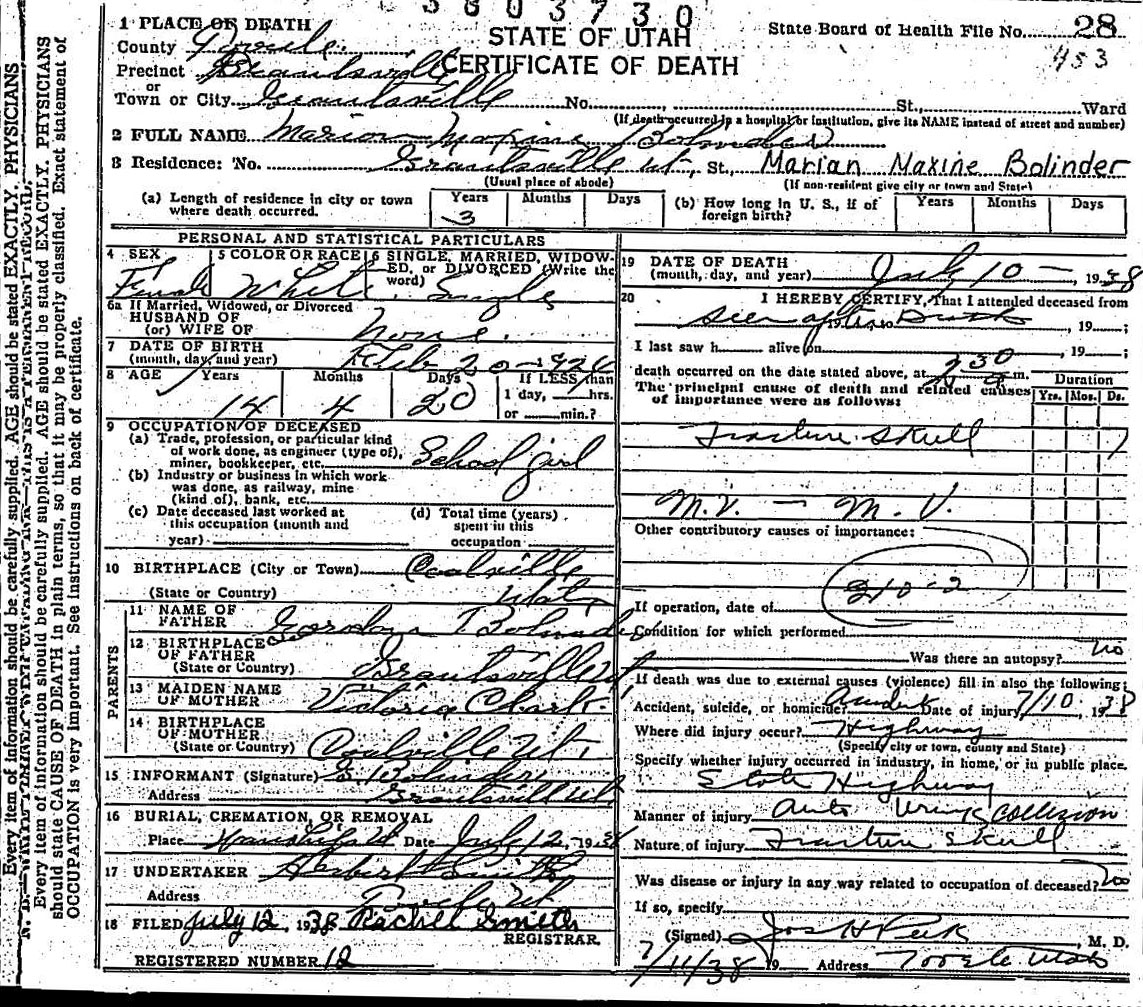 3803730
1 PLACE OF DEATH
STATE OF UTAH
State Board of Health File No. 28
County Tooele
453
Precinct Grantsville
CERTIFICATE OF DEATH
or
Town or City Grantsville No. St. Ward
(If death occurred in a hospital or institution, give its NAME instead of street and number)
2 FULL NAME Marion Maxine Bolinder
3 Residence: No. Grantsville Ut, St., Marian Maxine Bolinder
(Usual place of abode) (If non-resident give city or town and State)
(a) Length of residence in city or town where death occurred. Years 3 Months Days (b) How long in U. S., if of foreign birth? Years Months Days
PERSONAL AND STATISTICAL PARTICULARS
4 SEX 5 COLOR OR RACE 6 SINGLE, MARRIED, WIDOW-
ED, or DIVORCED (Write the
word)
Female White Single
6a If Married, Widowed, or Divorced
HUSBAND OF
(or) WIFE OF None.
7 DATE OF BIRTH
(month, day, and year) Feb 20 - 1924
8 AGE Years Months Days If LESS than
14 4 20 1 day, hrs.
or min.?
9 OCCUPATION OF DECEASED
(a) Trade, profession, or particular kind
of work done, as engineer (type of),
miner, bookkeeper, etc. School girl
(b) Industry or business in which work
was done, as railway, mine
(kind of), bank, etc.
(c) Date deceased last worked at
this occupation (month and
year)
(d) Total time (years)
spent in this
occupation
10 BIRTHPLACE (City or Town) Coalville
(State or Country) Utah
PARENTS
11 NAME OF
FATHER Gordon Bolinder
12 BIRTHPLACE
OF FATHER
(State or Country) Grantsville Ut,
13 MAIDEN NAME
OF MOTHER Victoria Clark.
14 BIRTHPLACE
OF MOTHER
(State or Country) Coalville Ut,
15 INFORMANT (Signature) G. Bolinder
Address Grantsville Ut,
16 BURIAL, CREMATION, OR REMOVAL
Place Ut Date July 12, 1938
17 UNDERTAKER Herbert Smith
Address Tooele Ut
18 FILED July 12, 1938 Rachel Smith
REGISTRAR.
REGISTERED NUMBER 12
19 DATE OF DEATH
(month, day, and year) July 10 - 1938
20 I HEREBY CERTIFY, That I attended deceased from
seen after Death, 19 ;
I last saw h alive on , 19 ;
death occurred on the date stated above, at 2 30 m.
The principal cause of death and related causes
of importance were as follows:
Duration
Yrs. Mos. Ds.
Fracture Skull
M.V. - M.V.
Other contributory causes of importance:
210-2
If operation, date of
Condition for which performed
Was there an autopsy? no
If death was due to external causes (violence) fill in also the following:
Accident, suicide, or homicide? Date of injury 7/10, 1938
Where did injury occur? Highway
(Specify city or town, county and State)
Specify whether injury occurred in industry, in home, or in public place.
State Highway
Manner of injury Auto collision
Nature of injury Fracture Skull
Was disease or injury in any way related to occupation of deceased? no
If so, specify
(Signed) Jos H Peck, M. D.
7/11/38 19 Address Tooele Utah
Every item of information should be carefully supplied. AGE should be stated EXACTLY. PHYSICIANS
Every item of information should be carefully supplied. AGE should be stated EXACTLY. PHYSICIANS
should state CAUSE OF DEATH in plain terms, so that it may be properly classified. Exact statement of
OCCUPATION is very important. See instructions on back of certificate.